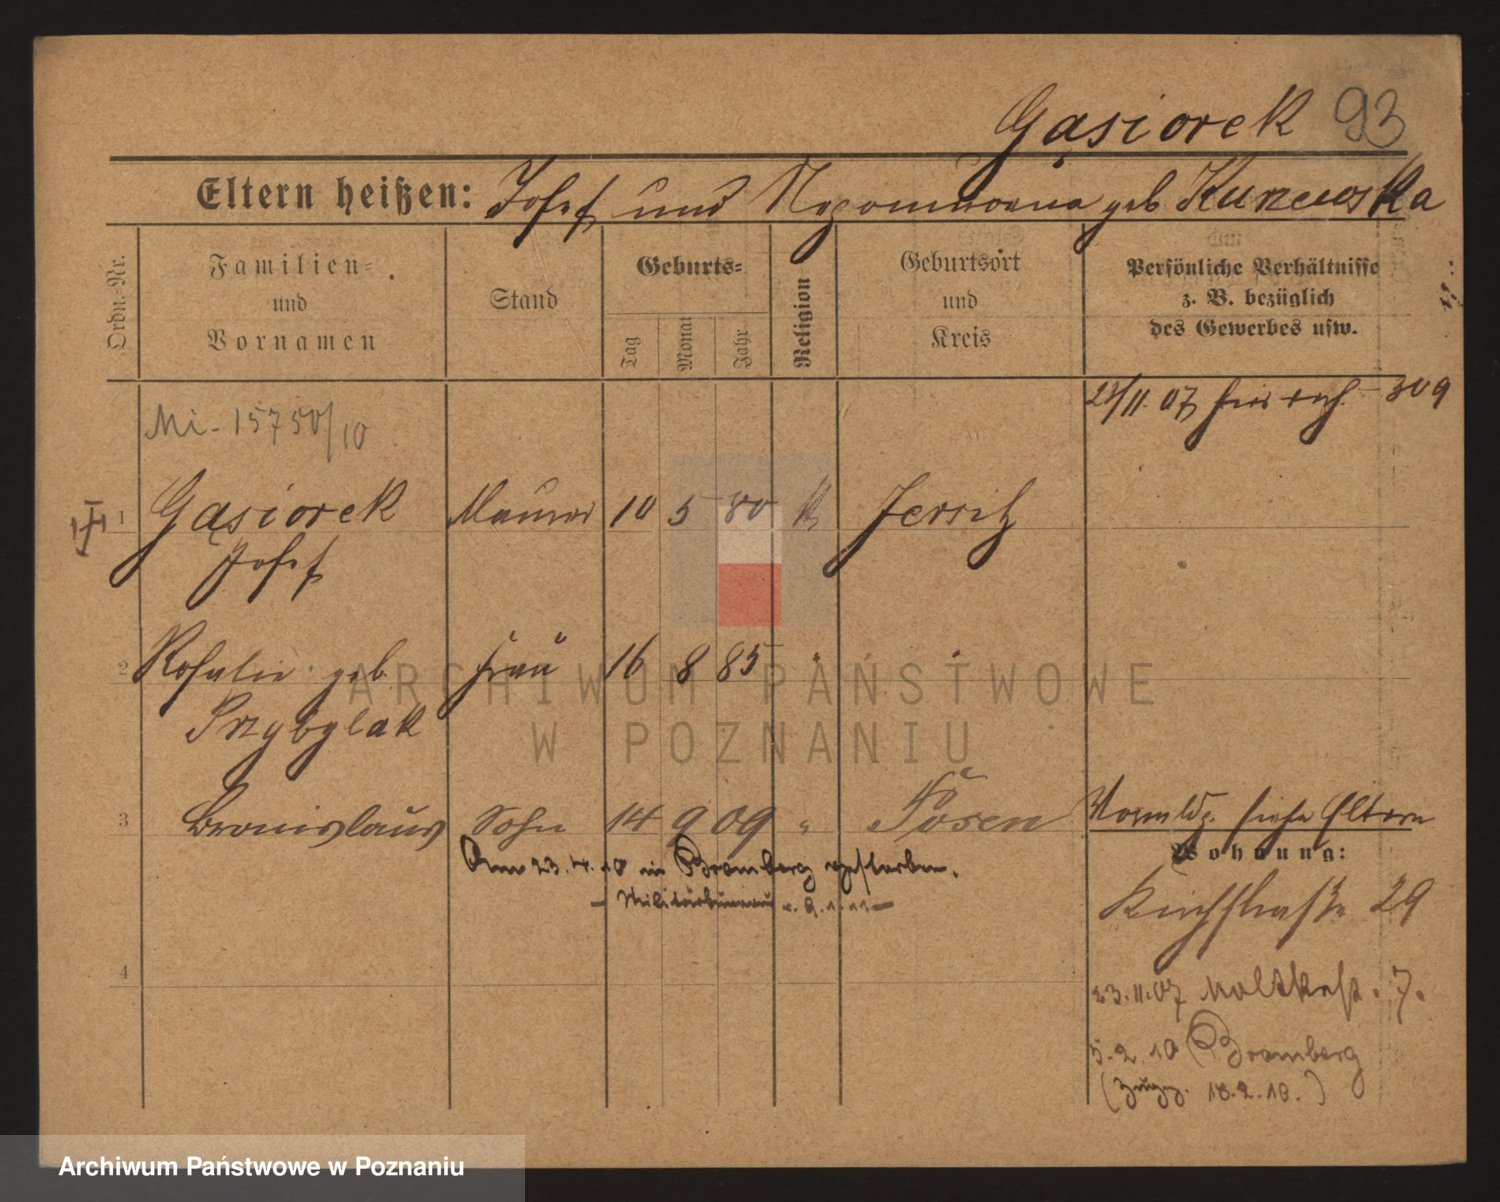 Gąsiorek 93
Eltern heißen: Josef und Nepomucena geb Kurzewska
Ordn.-Nr.
Familien-
und
Vornamen
Stand
Geburts-
Tag
Monat
Jahr
Religion
Geburtsort
und
Kreis
Persönliche Verhältnisse
z. B. bezüglich
des Gewerbes usw.
Mi- 15750/10
309
1 Gąsiorek Maurer 10 5 80 k Jersitz
Josef
2 Rosalie geb Frau 16 8 85 " "
Przybylak
3 Bronislaus Sohn 14 9 09 " Posen
siehe Eltern
Am 23.4.10 in Bromberg gestorben.
- 9.1.11 -
Wohnung:
Kirchstraße 29
4
23.11.07 Moltkestr. 7.
5.2.10 Bromberg
(Zugez. 18.2.10.)
ARCHIWUM PAŃSTWOWE
W POZNANIU
Archiwum Państwowe w Poznaniu